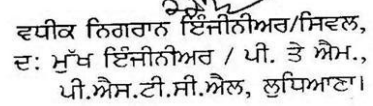 ਵਧੀਕ ਨਿਗਰਾਨ ਇੰਜੀਨੀਅਰ/ਸਿਵਲ,
ਦ: ਮੁੱਖ ਇੰਜੀਨੀਅਰ / ਪੀ. ਤੇ ਐਮ.,
ਪੀ.ਐਸ.ਟੀ.ਸੀ.ਐਲ, ਲੁਧਿਆਣਾ।